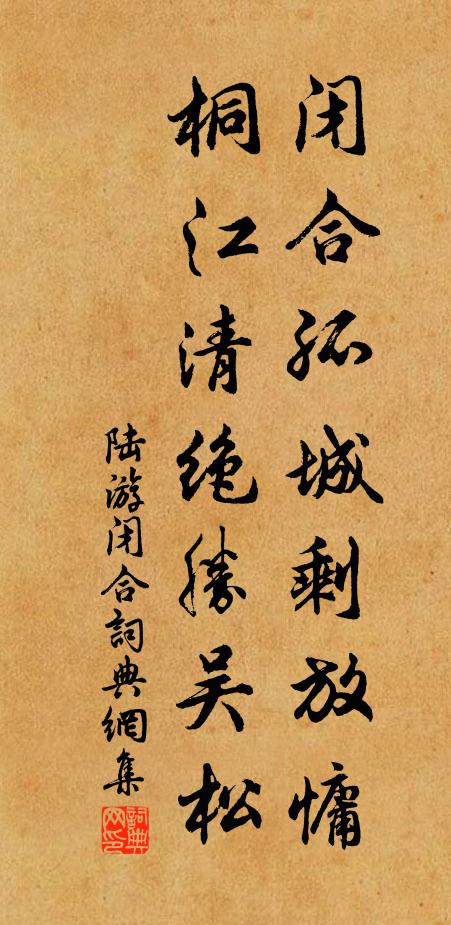 闭合孤城剩放慵
桐江清绝勝吴松
陆游闭合詞典網集
詞典网印